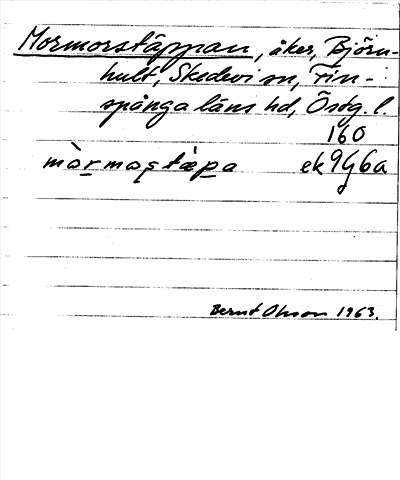 Mormorstäppan, åker, Björn-
hult, Skedevi sn, Fin-
spånga läns hd, Östg. l.
160
mòrmoştæ̀pa ek 9G6a
Bernt Olsson 1963.